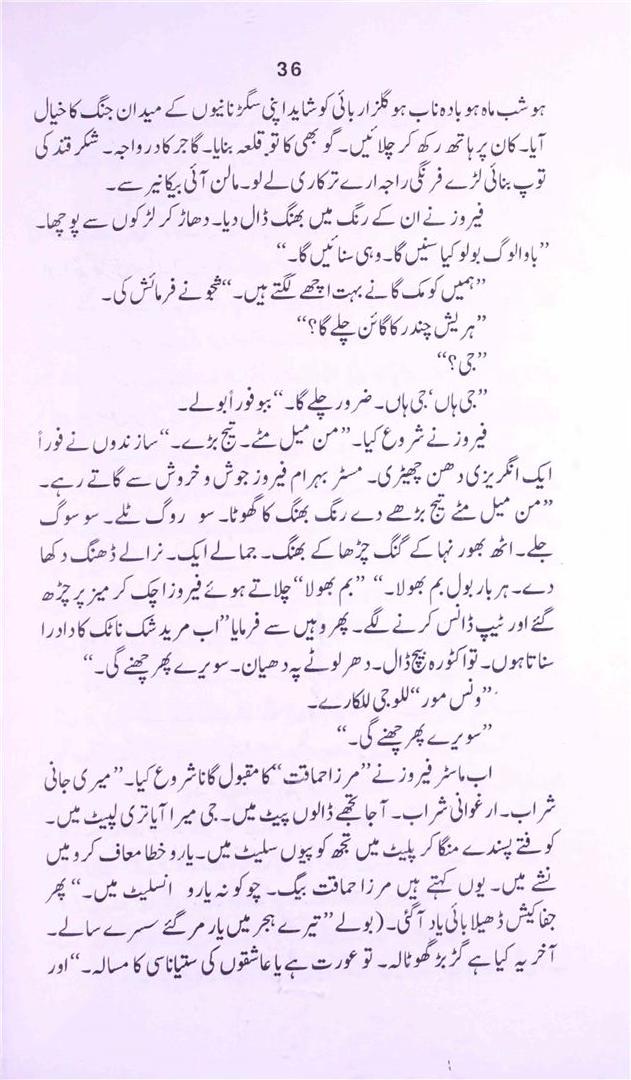 36
ہو شب ماہ ہو بادہ ناب ہو گلزار بائی کو شاید اپنی سگڑ نانیوں کے میدان جنگ کا خیال
آیا۔ کان پر ہاتھ رکھ کر چلائیں۔ گو بھی کا تو قلعہ بنایا۔ گاجر کا دروازجہ۔ شکر قند کی
توپ بنائی لڑے فرنگی راجہ ارے ترکاری لے لو۔ مالن آئی بیکانیر سے۔
فیروز نے ان کے رنگ میں بھنگ ڈال دیا۔ دھاڑ کر لڑکوں سے پوچھا۔
”باوا لوگ بولو کیا سنیں گا۔ وہی سنائیں گا۔“
”ہمیں کومک گانے بہت اچھے لگتے ہیں۔“ شجو نے فرمائش کی۔
”ہریش چندر کا گائن چلے گا؟“
”جی؟“
”جی ہاں‘ جی ہاں۔ ضرور چلے گا۔“ ببو فوراً بولے۔
فیروز نے شروع کیا۔ ”من میل مٹے۔ تیج بڑے۔“ سازندوں نے فوراً
ایک انگریزی دھن چھیڑی۔ مسٹر بہرام فیروز جوش و خروش سے گاتے رہے۔
”من میل مٹے تیج بڑھے دے رنگ بھنگ کا گھوٹا۔ سو روگ ٹلے۔ سو سوگ
جلے۔ اٹھ بھور نہا کے گنگ چڑھا کے بھنگ۔ جمالے ایک۔ نرالے ڈھنگ دکھا
دے۔ ہر بار بول بم بھولا۔“ ”بم بھولا“ چلاتے ہوئے فیروز اچک کر میز پر چڑھ
گئے اور ٹیپ ڈانس کرنے لگے۔ پھر وہیں سے فرمایا ”اب مرید شک ناٹک کا دادرا
سناتا ہوں۔ توا کٹورہ بیچ ڈال۔ دھر لوٹے پہ دھیان۔ سویرے پھر چھنے گی۔“
”ونس مور“ للو جی للکارے۔
”سویرے پھر چھنے گی۔“
اب ماسٹر فیروز نے ”مرزا حماقت“ کا مقبول گانا شروع کیا۔ ”میری جانی
شراب۔ ارغوانی شراب۔ آ جا تجھے ڈالوں پیٹ میں۔ جی میرا آیا تری لپیٹ میں۔
کوفتے پسندے منگا کر پلیٹ میں تجھ کو پیوں سلیٹ میں۔ یارو خطا معاف کرو میں
نشے میں۔ یوں کہتے ہیں مرزا حماقت بیگ۔ چوکو نہ یارو انسلیٹ میں۔“ پھر
جفا کیش ڈھیلا بائی یاد آ گئی۔ (بولے ”تیرے ہجر میں یار مر گئے سسرے سالے۔
آخر یہ کیا ہے گڑ بڑ گھوٹالہ۔ تو عورت ہے یا عاشقوں کی ستیاناسی کا مسالہ۔“ اور